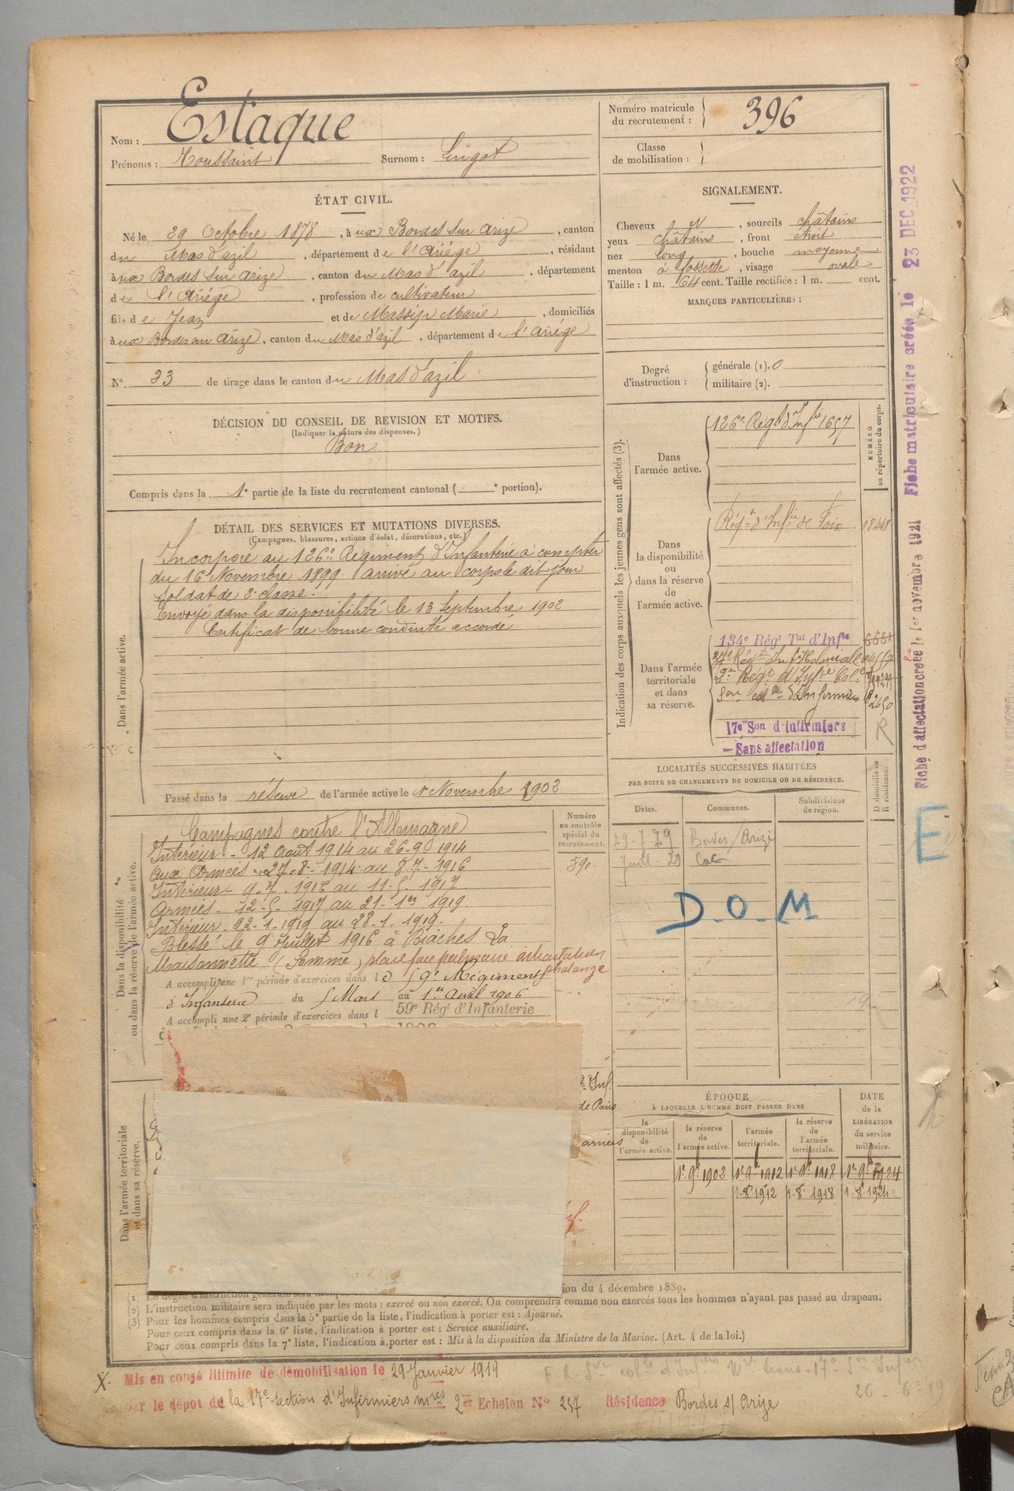 Nom : Estaque
Prénoms : Toussaint Surnom :
Numéro matricule du recrutement : 396
Classe de mobilisation :
ÉTAT CIVIL.
Né le 29 Octobre 1878, à ux Bordes sur Arize, canton
du Mas d'azil, département de l'Ariége, résidant
à ux Bordes sur Arize, canton du Mas d'azil, département
de l'Ariége, profession de cultivateur
fils de Jean et de Massip Marie, domiciliés
à ux Bordes sur Arize, canton du Mas d'azil, département de l'Ariége
N° 33 de tirage dans le canton du Mas d'azil.
SIGNALEMENT.
Cheveux , sourcils châtains
yeux châtains, front étroit
nez long, bouche moyenne
menton à fossette, visage ovale
Taille : 1 m. 64 cent. Taille rectifiée : 1 m. cent.
MARQUES PARTICULIÈRES :
Degré d'instruction : générale (1). 0
militaire (2).
DÉCISION DU CONSEIL DE REVISION ET MOTIFS.
(Indiquer la nature des dispenses.)
Bon
Compris dans la 1e partie de la liste du recrutement cantonal ( e portion).
DÉTAIL DES SERVICES ET MUTATIONS DIVERSES.
(Campagnes, blessures, actions d'éclat, décorations, etc.)
Dans l'armée active.
Incorporé au 126e Régiment d'Infanterie à compter
du 16 Novembre 1899. arrivé au corps le dit jour
soldat de 2e classe.
Envoyé dans la disponibilité le 13 Septembre 1902
Certificat de bonne conduite accordé
Passé dans la réserve de l'armée active le 1er Novembre 1902
Indication des corps auxquels les jeunes gens sont affectés (3).
NUMÉRO au répertoire du corps.
Dans l'armée active.
126e Régt d'Infie
Dans la disponibilité ou dans la réserve de l'armée active.
Régt d'Infie de Foix
Dans l'armée territoriale et dans sa réserve.
134e Régt Tal d'Infie
17e Son d'Infirmiers
R
Sans affectation
LOCALITÉS SUCCESSIVES HABITÉES
PAR SUITE DE CHANGEMENTS DE DOMICILE OU DE RÉSIDENCE.
Dates. Communes. Subdivisions de région. D domicile ou R résidence.
29-7-29 Bordes/Arize
D.O.M
E
Dans la disponibilité ou dans la réserve de l'armée active.
Numéro au contrôle spécial du recrutement.
390.
Campagnes contre l'Allemagne
Intérieur - 12 Août 1914 au 26-9 1914
aux Armées - 27-8-1914 au 8-7-1916
Intérieur - 9-7-1916 au 11-5-1917
Armées - 12-5-1917 au 21-1er 1919
Intérieur 22-1-1919 au 28-1-1919.
Blessé le 9 Juillet 1916 à Biaches La
Maisonnette (Somme)
phalange
A accompli une 1re période d'exercices dans l e 59e Régiment
d'Infanterie du 5 Mars au 1er Avril 1906
A accompli une 2e période d'exercices dans l 59e Régt d'Infanterie
de Paris
armées
Dans l'armée territoriale et dans sa réserve.
ÉPOQUE
À LAQUELLE L'HOMME DOIT PASSER DANS
DATE de la LIBÉRATION du service militaire.
la disponibilité de l'armée active. la réserve de l'armée active. l'armée territoriale. la réserve de l'armée territoriale.
1er 9bre 1902 1er 9bre 1912 1er 9bre 1918 1er 9bre 1924
1.8bre 1912 1.8bre 1918 1.8bre 1924
4 décembre 1889.
(2) L'instruction militaire sera indiquée par les mots : exercé ou non exercé. On comprendra comme non exercés tous les hommes n'ayant pas passé au drapeau.
(3) Pour les hommes compris dans la 5e partie de la liste, l'indication à porter est : Ajourné.
Pour ceux compris dans la 6e liste, l'indication à porter est : Service auxiliaire.
Pour ceux compris dans la 7e liste, l'indication à porter est : Mis à la disposition du Ministre de la Marine. (Art. 4 de la loi.)
X. Mis en congé illimité de démobilisation le 29 Janvier 1919
par le dépôt de la 17e section d'Infirmiers mres 2er Echelon N° 257 Résidence Bordes s/ Arize
Fiche matriculaire créée le 23 DEC 1922
Fiche d'affectation créée le 1er novembre 1921